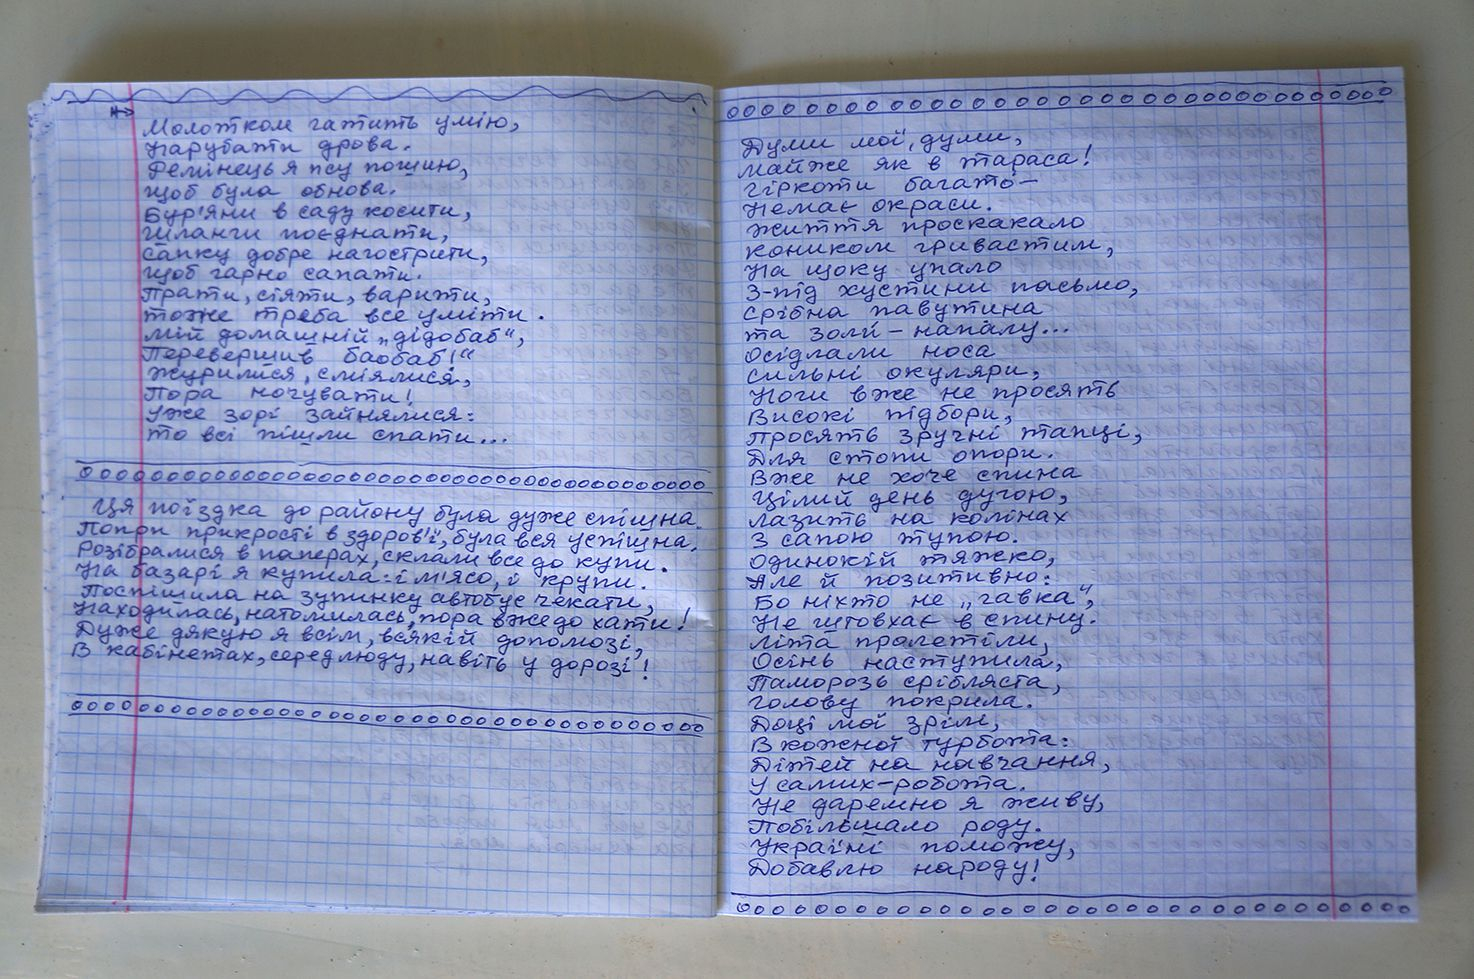 Молотком гатить умію,
Нарубати дрова.
Ремінець я псу пошию,
Щоб була обнова.
Бур'яни в саду косити,
Шланги поєднати,
Сапку добре нагострити,
Щоб гарно сапати.
Прати, сіяти, варити,
тоже треба все уміти.
Мій домашній „дідобаб",
Перевершив баобаб!"
Журилися, сміялися,
Пора ночувати!
Уже зорі зайнялися:
то всі пішли спати...
Ця поїздка до району була дуже спішна.
Попри прикрості в здоров'ї, була вся успішна.
Розібралися в паперах, склали все до купи.
На базарі я купила: і м'ясо, і крупи.
Поспішила на зупинку автобус чекати,
Находилась, натомилась, пора вже до хати!
Дуже дякую я всім, всякій допомозі,
В кабінетах, серед люду, навіть у дорозі!
Думи мої, думи,
майже як в тараса!
Гіркоти багато –
Немає окраси.
Життя проскакало
коником гривастим,
На щоку упало
З-під хустини пасьмо,
Срібна павутина
та золи – напалу...
Осідлали носа
сильні окуляри,
Ноги вже не просять
Високі підбори,
Просять зручні тапці,
Для стопи опори.
Вже не хоче спина
Цілий день дугою,
лазить на колінах
З сапою тупою.
Одинокій тяжко,
Але й позитивно:
Бо ніхто не „гавка",
Не штовхає в спину.
літа пролетіли,
Осінь наступила,
Паморозь срібляста,
Голову покрила.
Доці мої зрілі,
В кожної турбота:
Дітей на навчання,
У самих – робота.
Не даремно я живу,
Побільшало роду.
Україні поможу,
Добавлю народу!